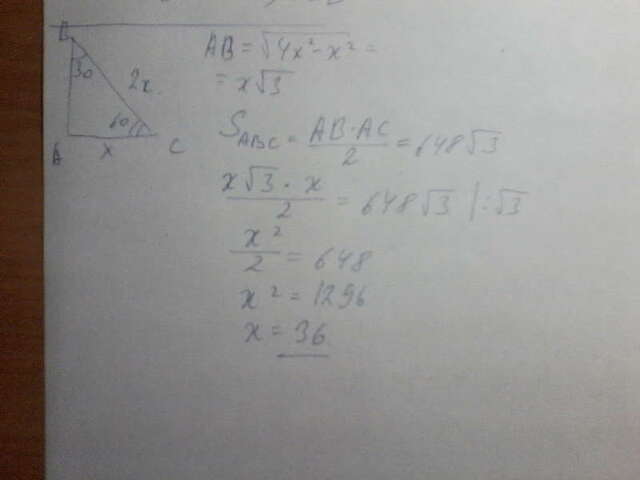 B
30
2x
60
A
x
C
AB = √4x² - x² =
= x√3
S ABC = AB · AC / 2 = 648√3
x√3 · x / 2 = 648√3 | : √3
x² / 2 = 648
x² = 1296
x = 36